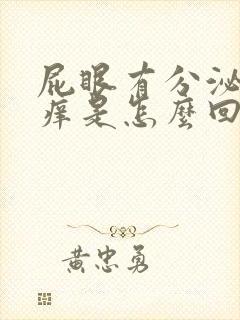 屁眼有分泌
痒是怎麼回
黄忠勇